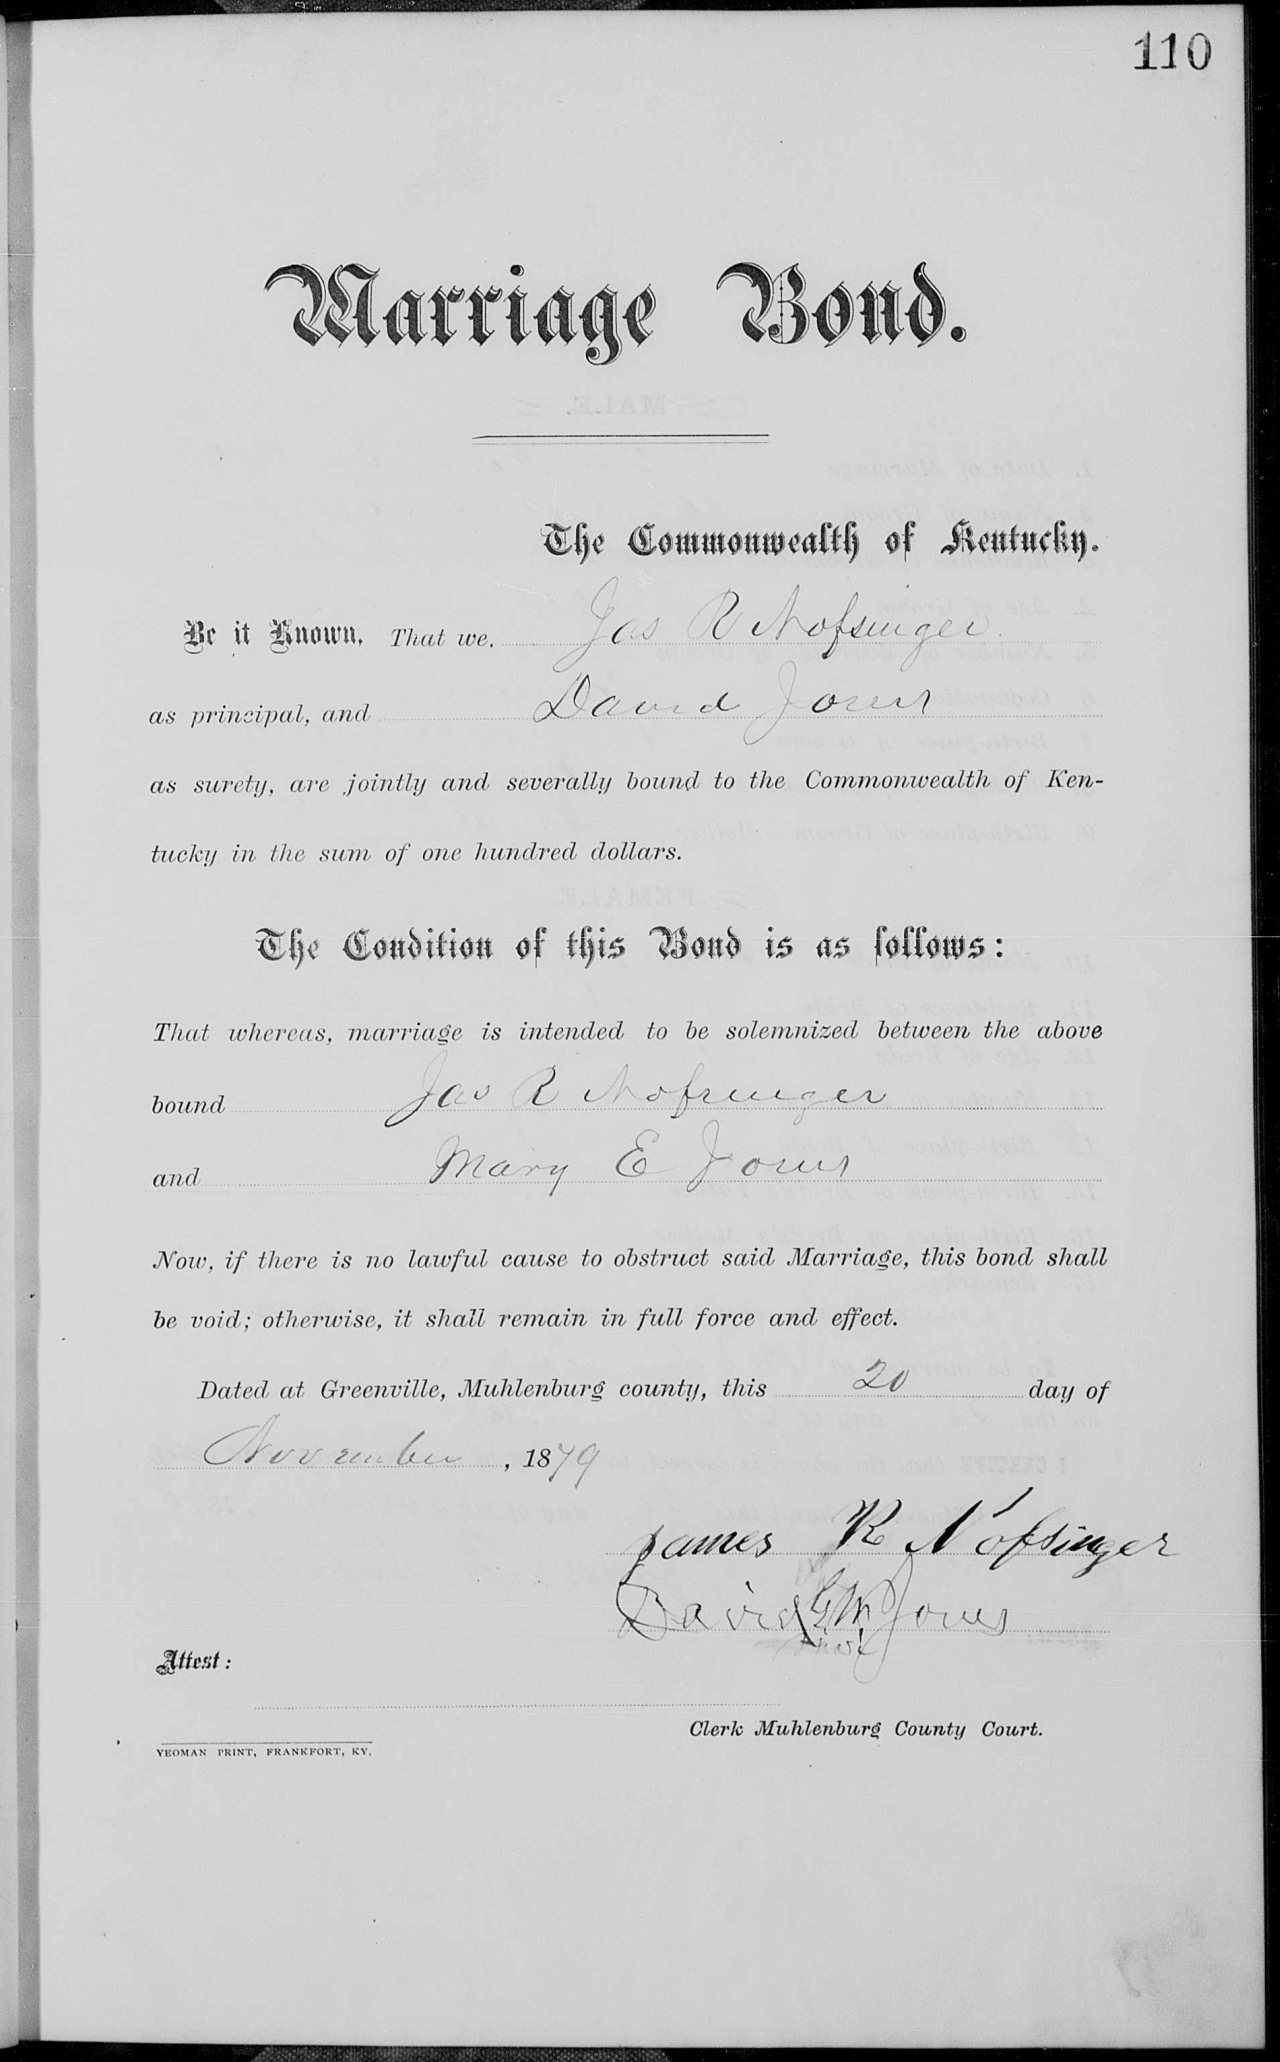 110
Marriage Bond.
The Commonwealth of Kentucky.
Be it Known, That we, Jas R Nofsinger
as principal, and David Jones
as surety, are jointly and severally bound to the Commonwealth of Ken-
tucky in the sum of one hundred dollars.
The Condition of this Bond is as follows:
That whereas, marriage is intended to be solemnized between the above
bound Jas R Nofsinger
and Mary E Jones
Now, if there is no lawful cause to obstruct said Marriage, this bond shall
be void; otherwise, it shall remain in full force and effect.
Dated at Greenville, Muhlenburg county, this 20 day of
November, 1879
James R Nofsinger
David G W Jones
Attest:
Clerk Muhlenburg County Court.
YEOMAN PRINT, FRANKFORT, KY.